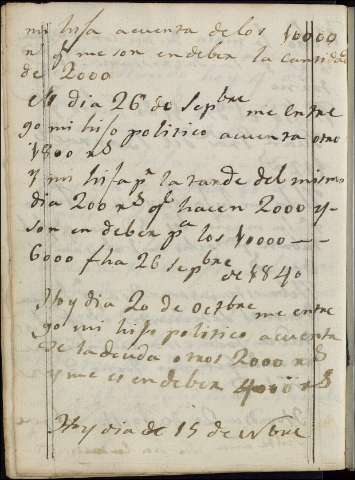 mi hija acuenta de los 10000
r q.e me son en deber la cantidad
de 2000
El dia 26 de Sepbre me entre
go mi hijo politico acuenta otro
1800 r.s
Y mi hija p.r la tarde del mismo
dia 200 r.s q.e hacen 2000 y
son en deber p.a los 10000 —
6000 fha 26 sepbre de 1840
Hoy dia 20 de octbre me entre
go mi hijo politico acuenta
de la deuda otros 2000 r.s
y me es en deber 4000 r.s
Hoy dia de 15 de